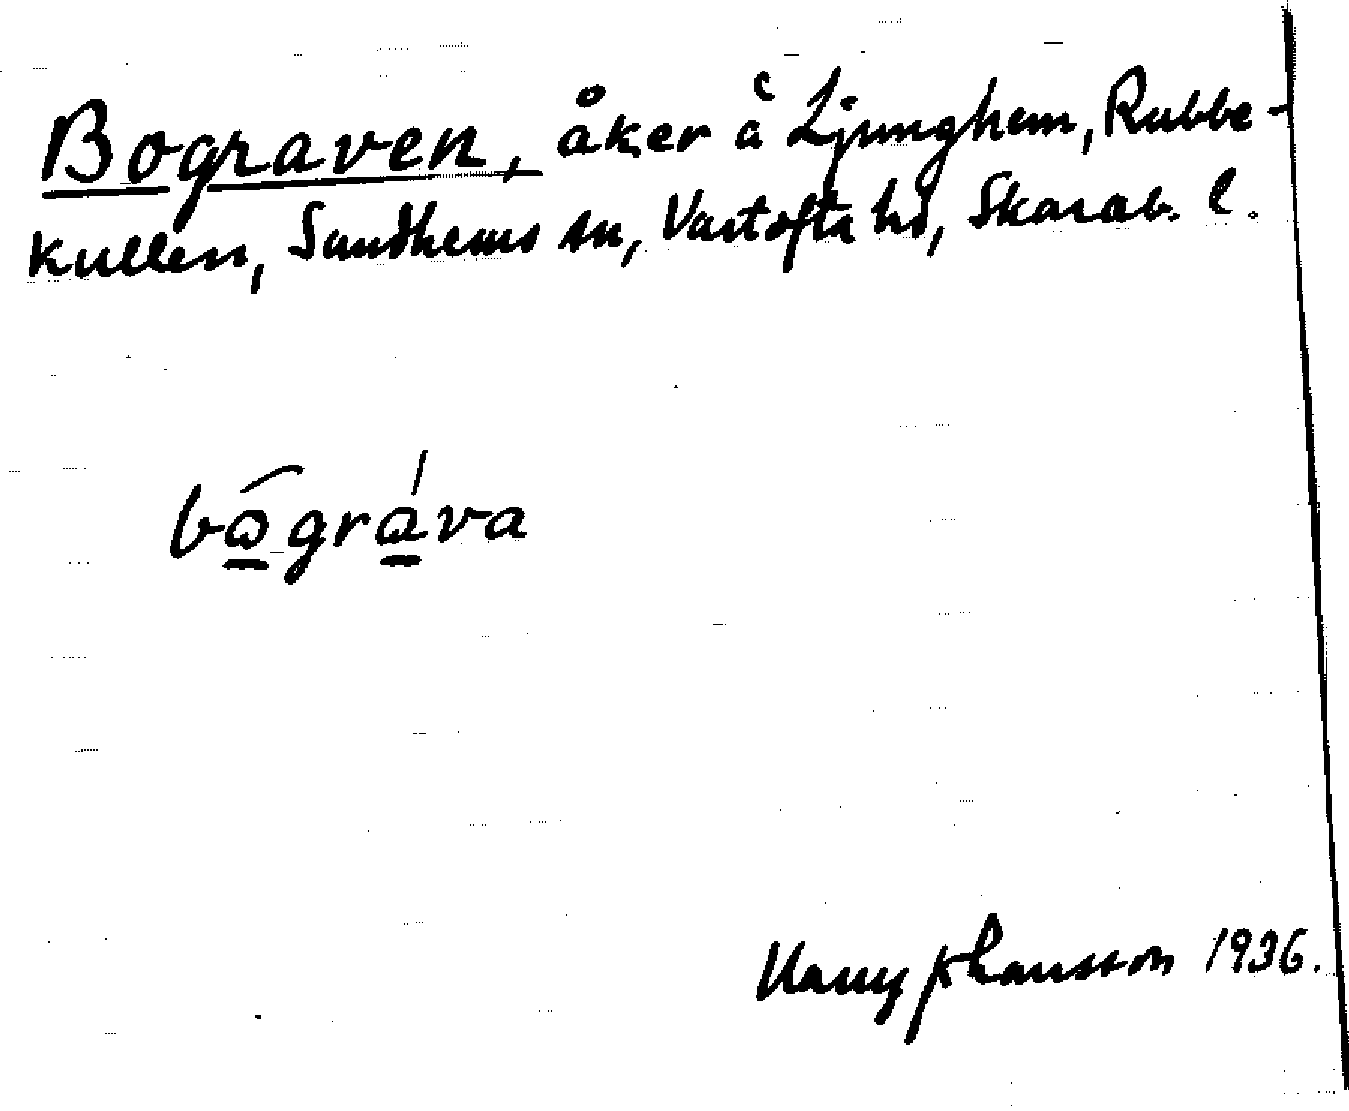 Bograven, åker å Ljunghem, Rubbe-
kullen, Sandhems sn, Vartofta hd, Skarab. l.
bōgráva
Harry Johansson 1936.